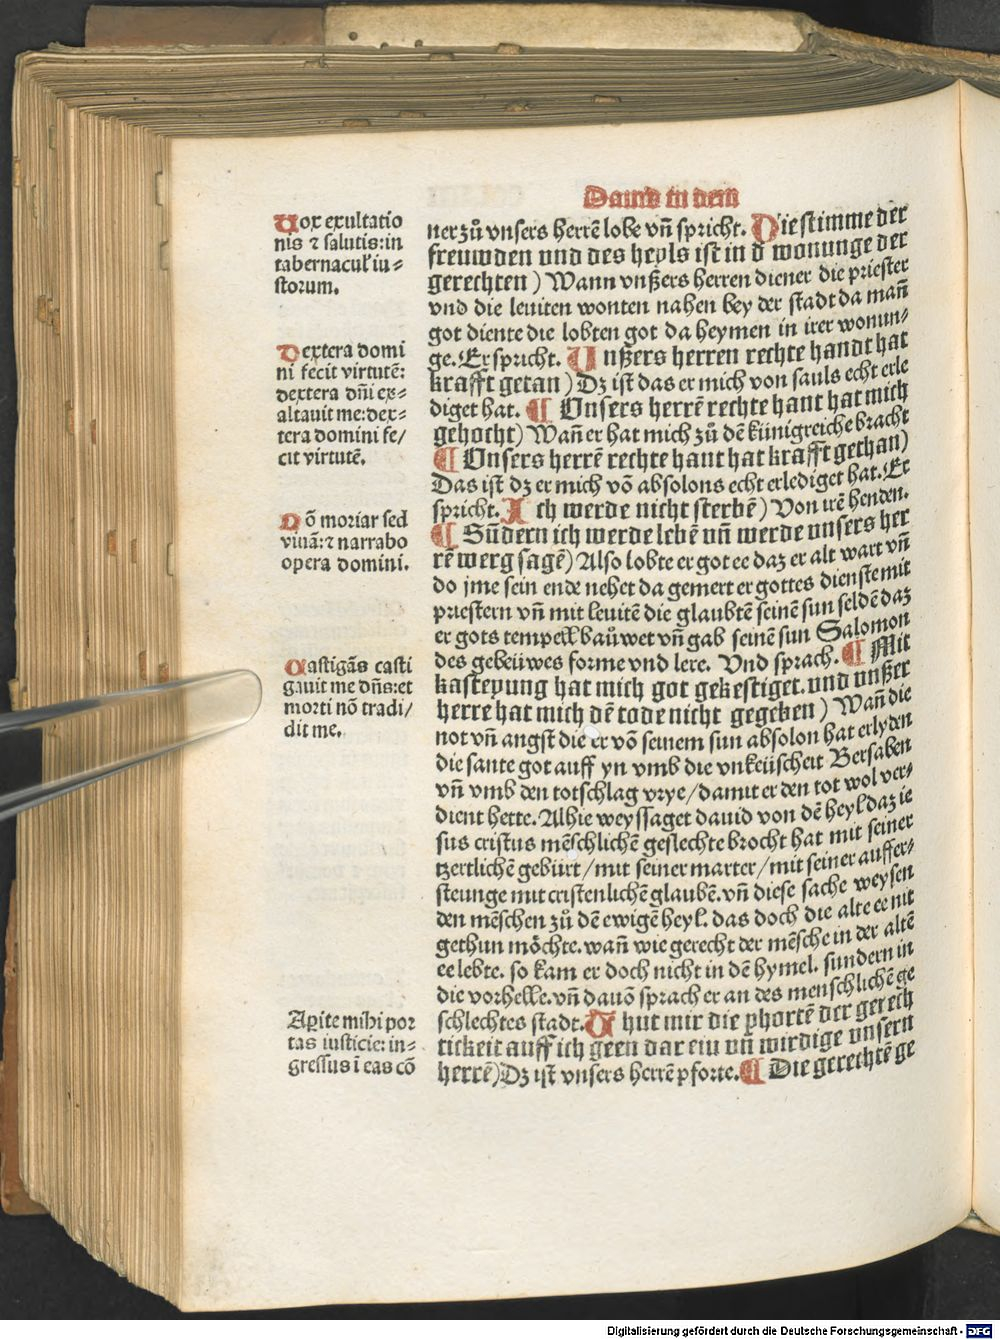 Dauid in dem
Uox exultatio
nis ⁊ salutis:in
tabernacul' iu⸗
storum.
Dextera domi
ni fecit virtutē:
dextera dn̄i ex⸗
altauit me:dex⸗
tera domini fe/
cit virtutē.
Nō moriar sed
viuā:⁊ narrabo
opera domini.
Castigās casti
gauit me dn̄s:et
morti nō tradi/
dit me.
Apite mihi por
tas iusticie:in⸗
gressus ī eas cō
ner zů vnsers herrē lobe vn̄ spricht. Die stimme der
freuwden vnd des heyls ist in d̄ wonunge der
gerechten) Wann vnßers herren diener die priester
vnd die leuiten wonten nahen bey der stadt da man̄
got diente die lobten got da heymen in irer wonun⸗
ge. Er spricht. Unßers herren rechte handt hat
krafft getan) Dz ist das er mich von sauls echt erle
diget hat. ¶ Vnsers herrē rechte hant hat mich
gehocht) Wan̄ er hat mich zů dē künigreiche bracht
¶ Vnsers herrē rechte hant hat krafft gethan)
Das ist dz er mich vō absolons echt erlediget hat. Er
spricht. Ich werde nicht sterbē) Von irē henden.
¶ Sūdern ich werde lebē vn̄ werde vnsers her
rē werg sagē) Also lobte er got ee daz er alt wart vn̄
do jme sein ende nehet da gemert er gottes dienste mit
priestern vn̄ mit leuitē die glaubtē seinē sun seldē daz
er gots tempell baůwet vn̄ gab seinē sun Salomon
des gebeüwes forme vnd lere. Vnd sprach. ¶ Mit
kasteyung hat mich got gekestiget. vnd vnßer
herre hat mich dē tode nicht gegeben) Wan̄ die
not vn̄ angst die er vō seinem sun absolon hat erlyden
die sante got auff yn vmb die vnkeüscheit Bersaben
vn̄ vmb den totschlag vrye/damit er den tot wol ver⸗
dient hette. Alhie weyssaget dauid von dē heyl daz ie
sus cristus mēschlichē geslechte brocht hat mit seiner
tzertlichē gebürt/mit seiner marter/mit seiner auffer⸗
steunge mit cristenlichē glaubē. vn̄ diese sache weysen
den mēschen zů dē ewigē heyl. das doch die alte ee nit
gethun möchte. wan̄ wie gerecht der mēsche in der altē
ee lebte. so kam er doch nicht in dē hymel. sundern in
die vorhelle. vn̄ dauō sprach er an des menschlichē ge
schlechtes stadt. Thut mir die phortē der gerech
tickeit auff ich geen dar ein vn̄ wirdige vnsern
herrē) Dz ist vnsers herrē pforte. ¶ Die gerechtē ge
Digitalisierung gefördert durch die Deutsche Forschungsgemeinschaft - DFG